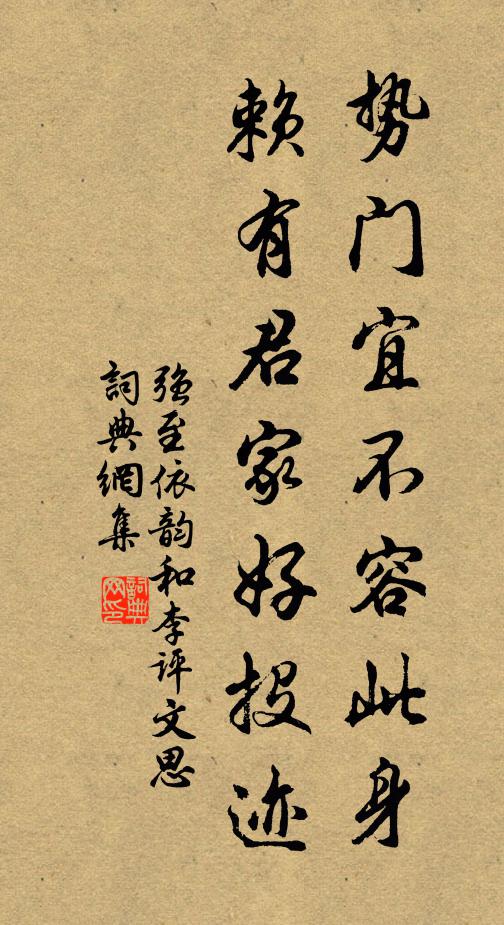 势门宜不容此身
赖有君家好投迹
强至依韵和李评文思
詞典網集
詞典
网印